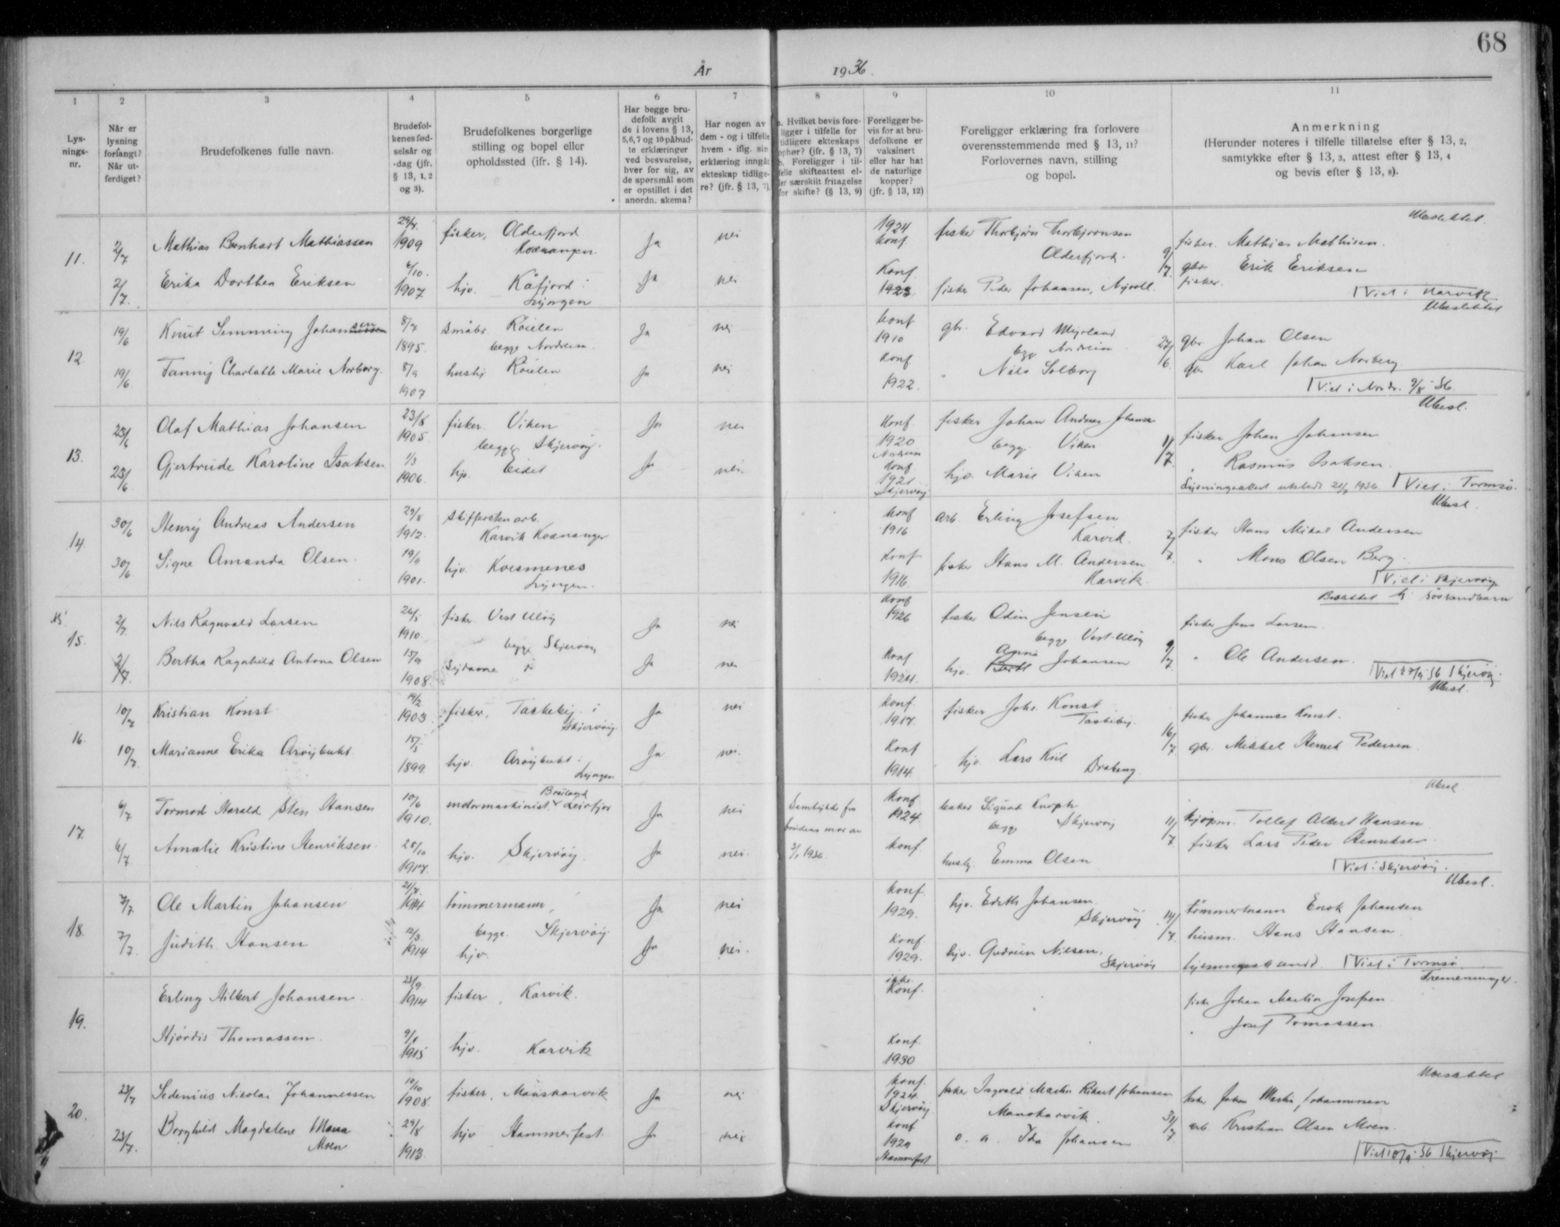 68
År 1936.
1 2 3 4 5 6 7 8 9 10 11
Lys-
nings-
nr.
Når er
lysning
forlangt?
Når ut-
ferdiget?
Brudefolkenes fulle navn.
Brudefol-
kenes fød-
selsår og
-dag (jfr.
§ 13, 1, 2
og 3).
Brudefolkenes borgerlige
stilling og bopel eller
opholdssted (ifr. § 14).
Har begge bru-
defolk avgit
de i lovens § 13,
5,6,7 og 10 påbud-
te erklæringer
ved besvarelse,
hver for sig, av
de spørsmål som
er opstillet i det
anordn. skema?
Har nogen av
dem - og i tilfelle
hvem - iflg. sin
erklæring inngåt
ekteskap tidlige-
re? (jfr. § 13, 7)
a. Hvilket bevis fore-
ligger i tilfelle for
tidligere ekteskaps
ophør? (jfr. § 13, 7)
b. Foreligger i til-
felle skifteattest el-
ler særskilt fritagelse
for skifte? (§ 13, 9)
Foreligger be-
vis for at bru-
defolkene er
vaksinert
eller har hat
de naturlige
kopper?
(jfr. § 13, 12)
Foreligger erklæring fra forlovere
overensstemmende med § 13, 11?
Forlovernes navn, stilling
og bopel.
Anmerkning
(Herunder noteres i tilfelle tillatelse efter § 13, 2,
samtykke efter § 13, 3, attest efter § 13, 4
og bevis efter § 13, 8).
Ubeslektet
11. 2/7 Mathias Bernhart Mathiassen 1909 fisker, Olderfjord Ja nei 1924 konf fisker Thorbjørn Thorbjørnsen fisker Mathias Mathisen
Kvænangen Olderfjord. 9/7
2/7. Erika Dorthea Eriksen 6/10. 1907 hjv. Kåfjord i Ja nei Konf 1923 fisker Peder Johansen, gbr Erik Eriksen
Lyngen fisker. Viet i Narvik
Ubeslektet
12 19/6 Knut Semming Johansen 8/7 1895. småbr Roielen Ja nei konf 1910 gbr. Edvard Myrland gbr Johan Olsen
begge Nordreisa begge Nordreisa
19/6 Fanny Charlotte Marie Norberg 8/9 1907 hustej Roielen Ja nei konf 1922. " Nils Solborg gbr Karl Johan Norberg
Viet i Nordr.
Ubesl.
13. 23/6 Olaf Mathias Johansen 23/8 1905 fisker Viken Ja nei konf 1920 fisker Johan Andreas Johans. fisker Johan Johansen
begge Skjervøy. begge Viken 1/7
23/6 Gjertrude Karoline Isaksen 1/3 1906. hjv. Eidet Ja nei. konf 1921 Skjervøy hjv. Marie Viken " Rasmus Isaksen.
Lysningsattest utstedt 1936 Viet i Tromsø.
Ubesl
14. 30/6 Henry Andreas Andersen 29/8 1912. Skifferstenarb. konf 1916 arb. Erling Josefsen fisker Hans Mikal Andersen
Karvik Kvænangen Karvik.
30/6 Signe Amanda Olsen. 19/9 1901. hjv. Koesmenes konf 1916 fisker Hans M. Andersen " Mons Olsen Berg.
Lyngen. Karvik. Viet i Skjervøy
Beslektet søskendbarn
15. 2/7. Nils Ragnvald Larsen 26/5 1910. fisker Vest Uløy Ja nei konf 1926 fisker Odin Jensen fisker Jens Larsen
begge Skjervøy begge Vest-Uløy
2/7. Bertha Ragnhild Antona Olsen 15/9 1908. Ja nei konf hjv. Agnes Johansen 9/7 " Ole Andersen.
Viet 36 Skjervøy.
Ubesl.
16. 10/7 Kristian Konst 14/2 1903 fisker, Taskeby i Ja nei konf. 1917. fisker Johs. Konst fisker Johannes Konst.
Skjervøy Taskeby 16/7
10/7. Marianne Erika Arøybukt 15/5 1899. hjv. Arøybukt i Ja nei. konf 1914. hjv. Lars Kiil gbr. Mikkel Henrik Pedersen
Lyngen
Ubesl
17. 6/7 Tormod Harald Sten Hansen 10/6 1910. undermaskinist Leirfjor Ja nei Samtykke fra konf 1924. baker Sigurd Knoph kjøpm. Tollef Albert Hansen
brudens mor av begge Skjervøy 11/7
6/7. Amalie Kristine Henriksen 25/10 1917. hjv. Skjervøy. Ja nei. 1936. konf. Emma Olsen fisker Lars Peder Henriksen
Viet i Skjervøy.
Ubesl.
18. 7/7. Ole Martin Johansen 1914 tømmermann, Ja nei konf 1929. hjv. Edith Johansen. tømmermann Enok Johansen
begge. Skjervøy Skjervøy 14/7
7/7. Judith Hansen 12/3 1914 hjv. Ja nei. konf 1929. hjv. Gudrun Nilsen. husm. Hans Hansen
Skjervøy Viet i Tromsø
Tremenninger.
19. Erling Hilbert Johansen. 23/9 1914 fisker, Karvik. ikke konf. fisker Johan Martin Josefsen
Hjørdis Thomassen. 9/1 1915 hjv. Karvik konf 1930 " Josef Tomassen
Ubeslektet
20. 23/7 Sedenius Nicolai Johannessen 10/10 1908. fisker, Maursarvik Ja nei konf. 1924 Skjervøy fisker Ingvald Martin Rikart Johansen fisker Johan Martin Johannessen
23/7. Borghild Magdalene Maria 29/8 1913. hjv Hammerfest. Ja nei konf 1929 Hammerfest o. a. Ida Johansen arb Kristian Olsen Moen.
Moen Viet 36 Skjervøy